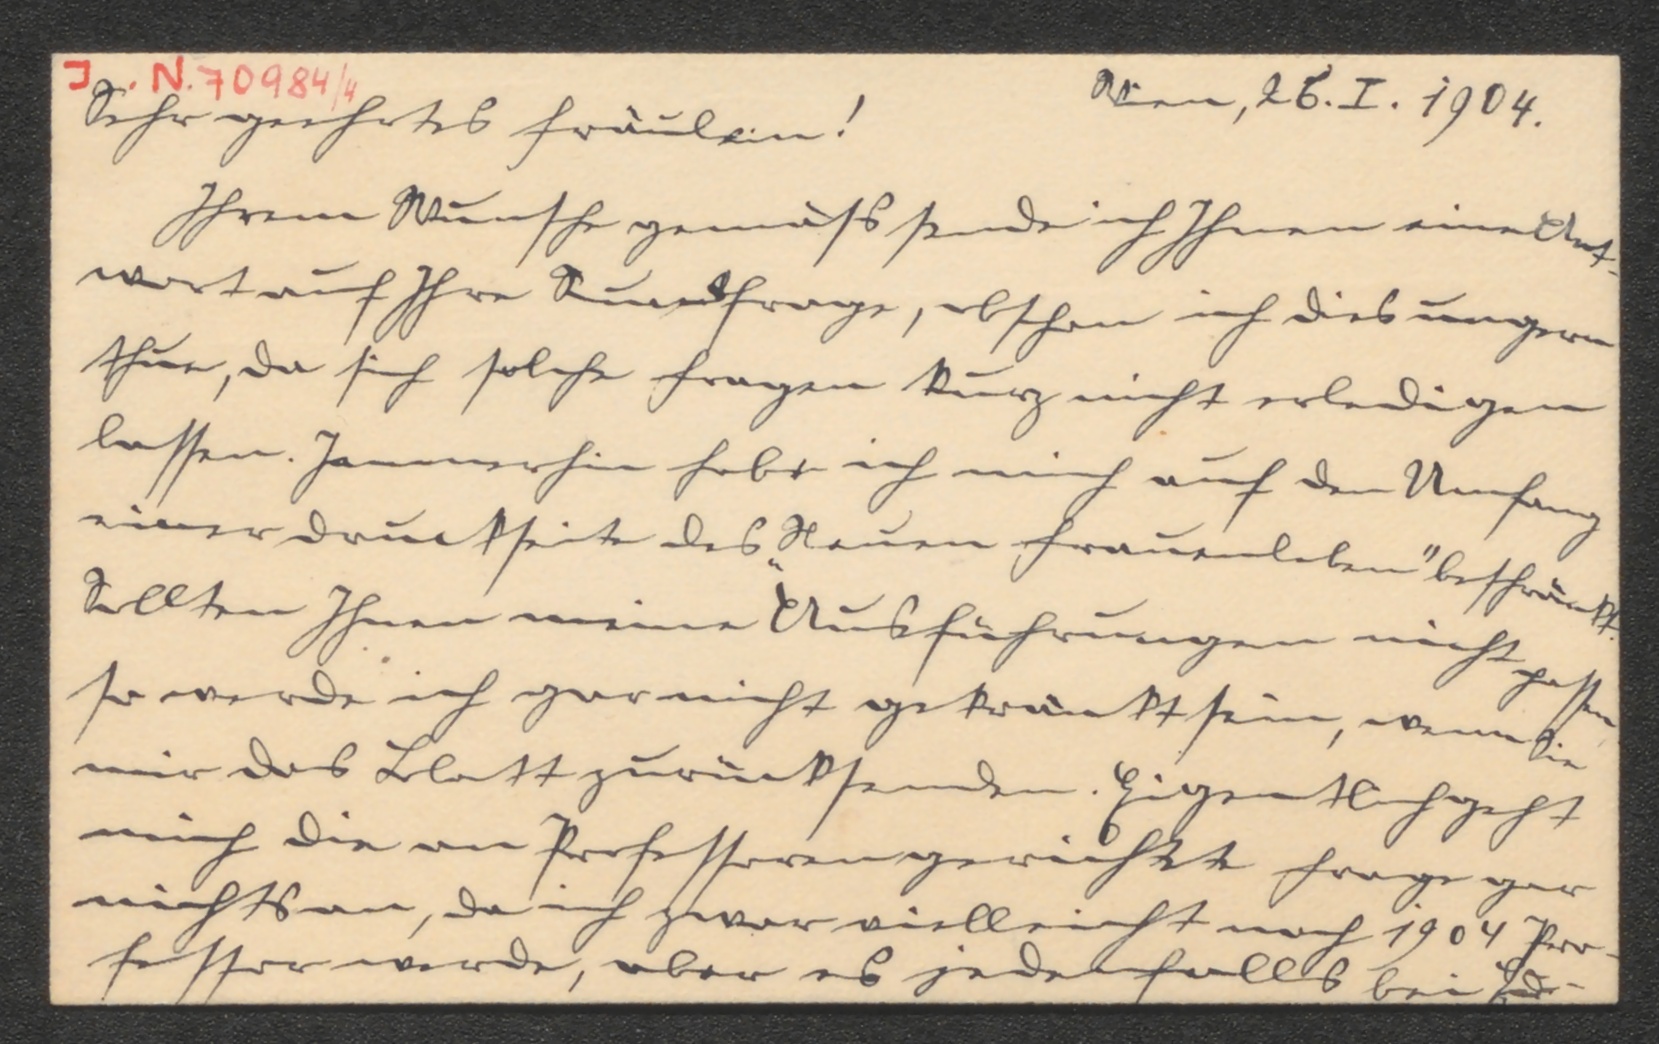 J. N. 70984/4
Wien, 26. I. 1904.
Sehr geehrtes Fräulein!
Ihrem Wunsche gemäss sende ich Ihnen eine Ant-
wort auf Ihre Rundfrage, obschon ich dies ungern
thue, da sich solche Fragen kurz nicht erledigen
lassen. Immerhin habe ich mich auf den Umfang
einer Druckseite des „Neuen Frauenleben" beschränkt.
Sollten Ihnen meine Ausführungen nicht passen,
so werde ich gar nicht gekränkt sein, wenn Sie
mir das Blatt zurücksenden. Eigentlich geht
mich die an Professoren gerichtete Frage gar
nichts an, da ich zwar vielleicht noch 1904 Pro-
fessor werde, aber es jedenfalls bei